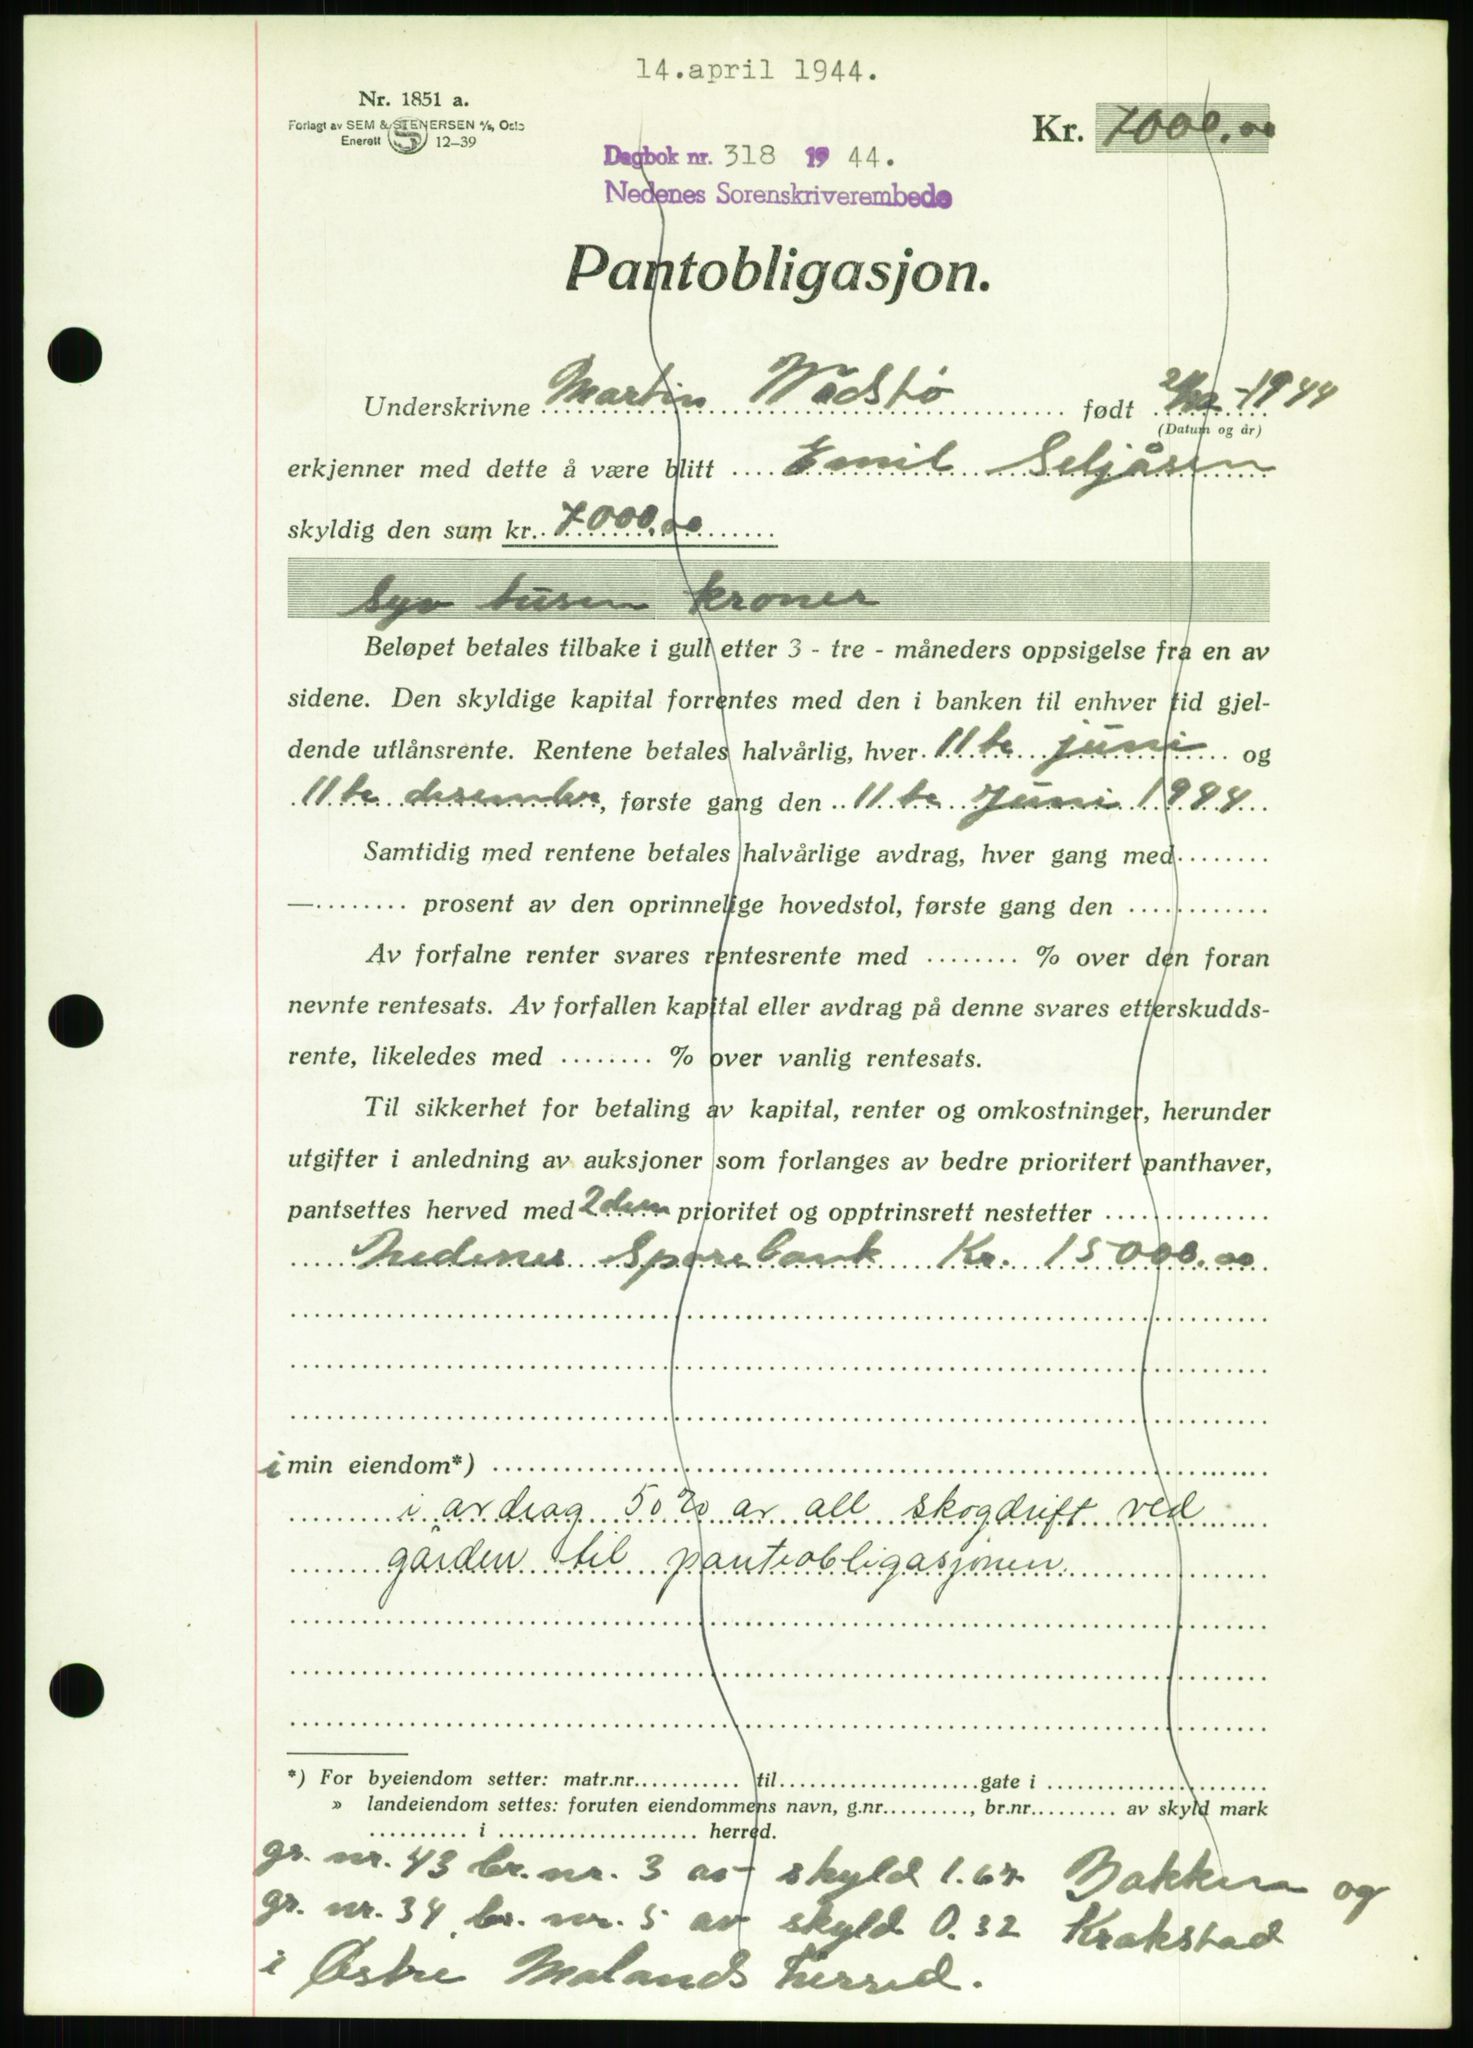 14.april 1944.
Nr. 1851 a.
Forlagt av SEM & STENERSEN A/S, Oslo
Enerett S 12–39
Kr. 7000.00
Dagbok nr. 318 1944.
Nedenes Sorenskriverembede
Pantobligasjon.
Underskrivne Martin Vådstø født -1944
(Datum og år)
erkjenner med dette å være blitt Emil Seljåsen
skyldig den sum kr. 7000.00
Syv tusen kroner
Beløpet betales tilbake i gull etter 3 - tre - måneders oppsigelse fra en av
sidene. Den skyldige kapital forrentes med den i banken til enhver tid gjel-
dende utlånsrente. Rentene betales halvårlig, hver 11te juni og
11te desember, første gang den 11te Juni 1944
Samtidig med rentene betales halvårlige avdrag, hver gang med ........
—........ prosent av den oprinnelige hovedstol, første gang den ............
Av forfalne renter svares rentesrente med ........ % over den foran
nevnte rentesats. Av forfallen kapital eller avdrag på denne svares etterskudds-
rente, likeledes med ........ % over vanlig rentesats.
Til sikkerhet for betaling av kapital, renter og omkostninger, herunder
utgifter i anledning av auksjoner som forlanges av bedre prioritert panthaver,
pantsettes herved med 2den prioritet og opptrinsrett nestetter ..............
Nedenes Sparebank Kr. 15000.00
i min eiendom*)
i avdrag 50% av all skogdrift ved
gården til panteobligasjonen.
*) For byeiendom setter: matr.nr........... til....................gate i ......................
» landeiendom settes: foruten eiendommens navn, g.nr........., br.nr......... av skyld mark
.......... i .................... herred.
gr. nr. 43 br. nr. 3 av skyld 1.67 Bakken og
gr. nr. 34 br. nr. 5 av skyld 0.32 Krakstad
i Østre Molands herred.